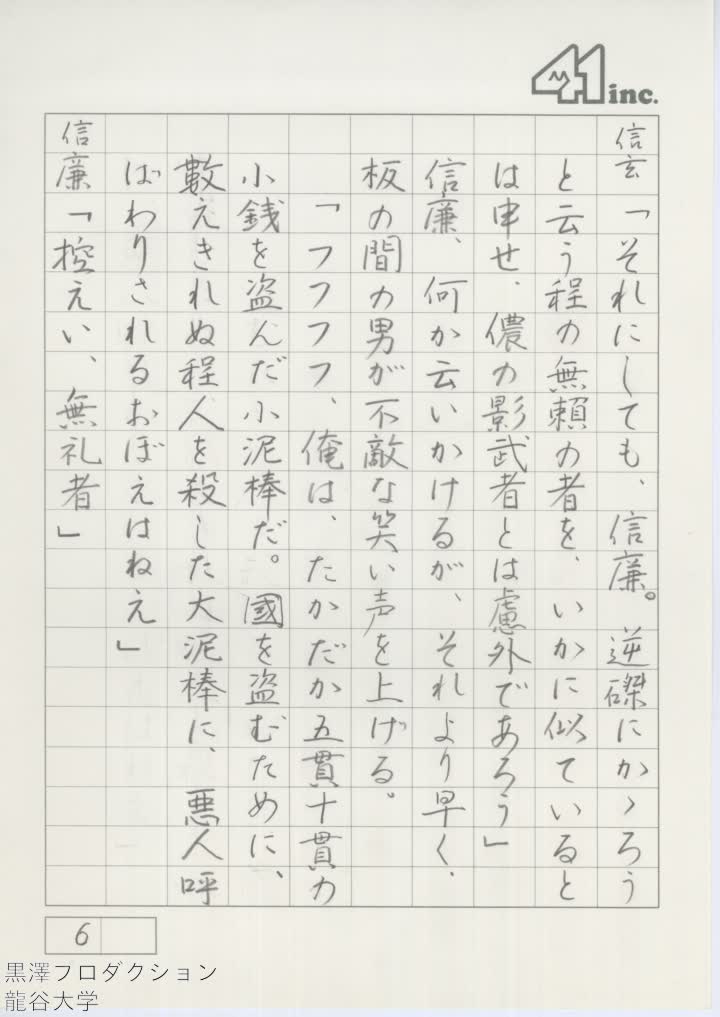 41 inc.
信玄「それにしても、信廉。逆磔にかゝろう
と云う程の無頼の者を、いかに似ていると
は申せ、儂の影武者とは慮外であろう」
信廉、何か云いかけるが、それより早く、
板の間の男が不敵な笑い声を上げる。
「フフフフ、俺は、たかだか五貫十貫の
小銭を盗んだ小泥棒だ。國を盗むために、
數えきれぬ程人を殺した大泥棒に、悪人呼
ばわりされるおぼえはねえ」
信廉「控えい、無礼者」
6
黒澤プロダクション
龍谷大学